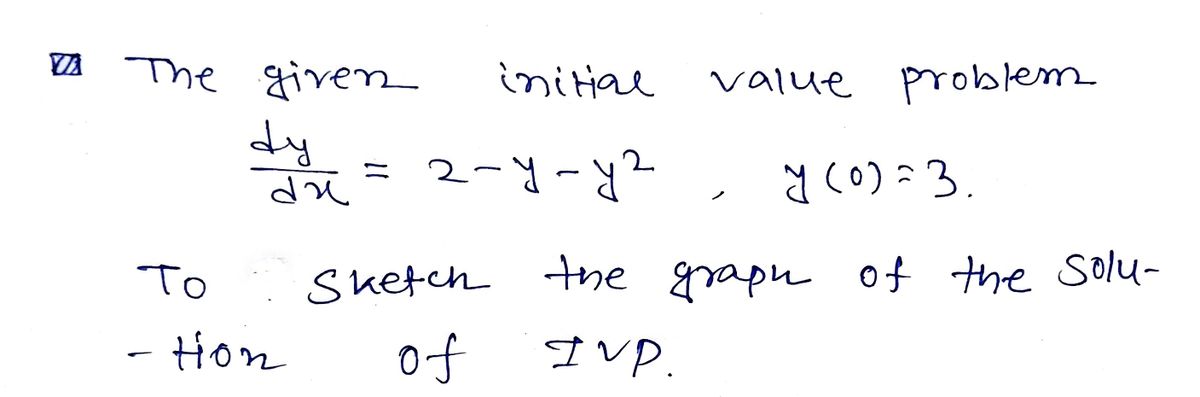 The given initial value problem
dy/dx = 2-y-y² , y(0)=3.
To sketch the graph of the Solu-
-tion of IVP.